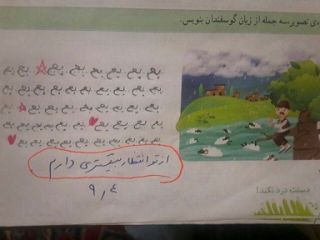 ه‌ی تصویر، سه جمله از زبان گوسفندان بنویس.
بع بع بع بع بع بع بع بع
بع بع بع بع بع بع بع بع
بع بع بع بع بع بع بع بع
بع بع بع بع بع بع بع
بع بع بع بع بع بع بع
از تو انتظار بیشتری دارم
۹٫۴
دستت درد نکند!